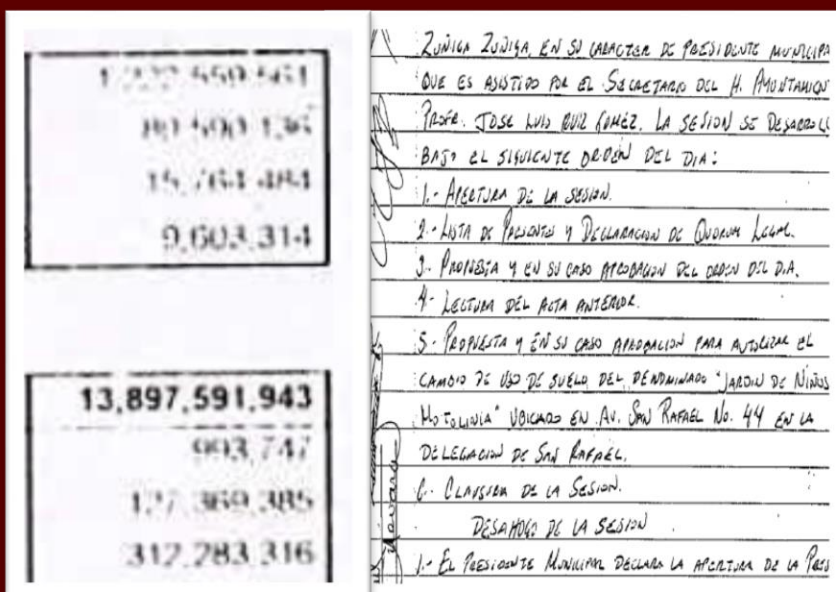 1,222,559,561
80,500,136
15,764,484
9,603,314
13,897,591,943
993,747
127,369,385
312,283,316
ZUÑIGA ZUÑIGA, EN SU CARACTER DE PRESIDENTE MUNICIPA
QUE ES ASISTIDO POR EL SECRETARIO DEL H. AYUNTAMIEN
PROFR. JOSE LUIS RUIZ GOMEZ. LA SESION SE DESARROLL
BAJO EL SIGUIENTE ORDEN DEL DIA:
1.- APERTURA DE LA SESION.
2.- LISTA DE PRESENTES Y DECLARACION DE QUORUM LEGAL.
3.- PROPUESTA Y EN SU CASO APROBACION DEL ORDEN DEL DIA.
4.- LECTURA DEL ACTA ANTERIOR.
5.- PROPUESTA Y EN SU CASO APROBACION PARA AUTORIZAR EL
CAMBIO DE USO DE SUELO DEL DENOMINADO "JARDIN DE NIÑOS
MOTOLINIA" UBICADO EN AV. SAN RAFAEL No. 44 EN LA
DELEGACION DE SAN RAFAEL.
6.- CLAUSURA DE LA SESION.
DESAHOGO DE LA SESION
1.- EL PRESIDENTE MUNICIPAL DECLARA LA APERTURA DE LA PRES